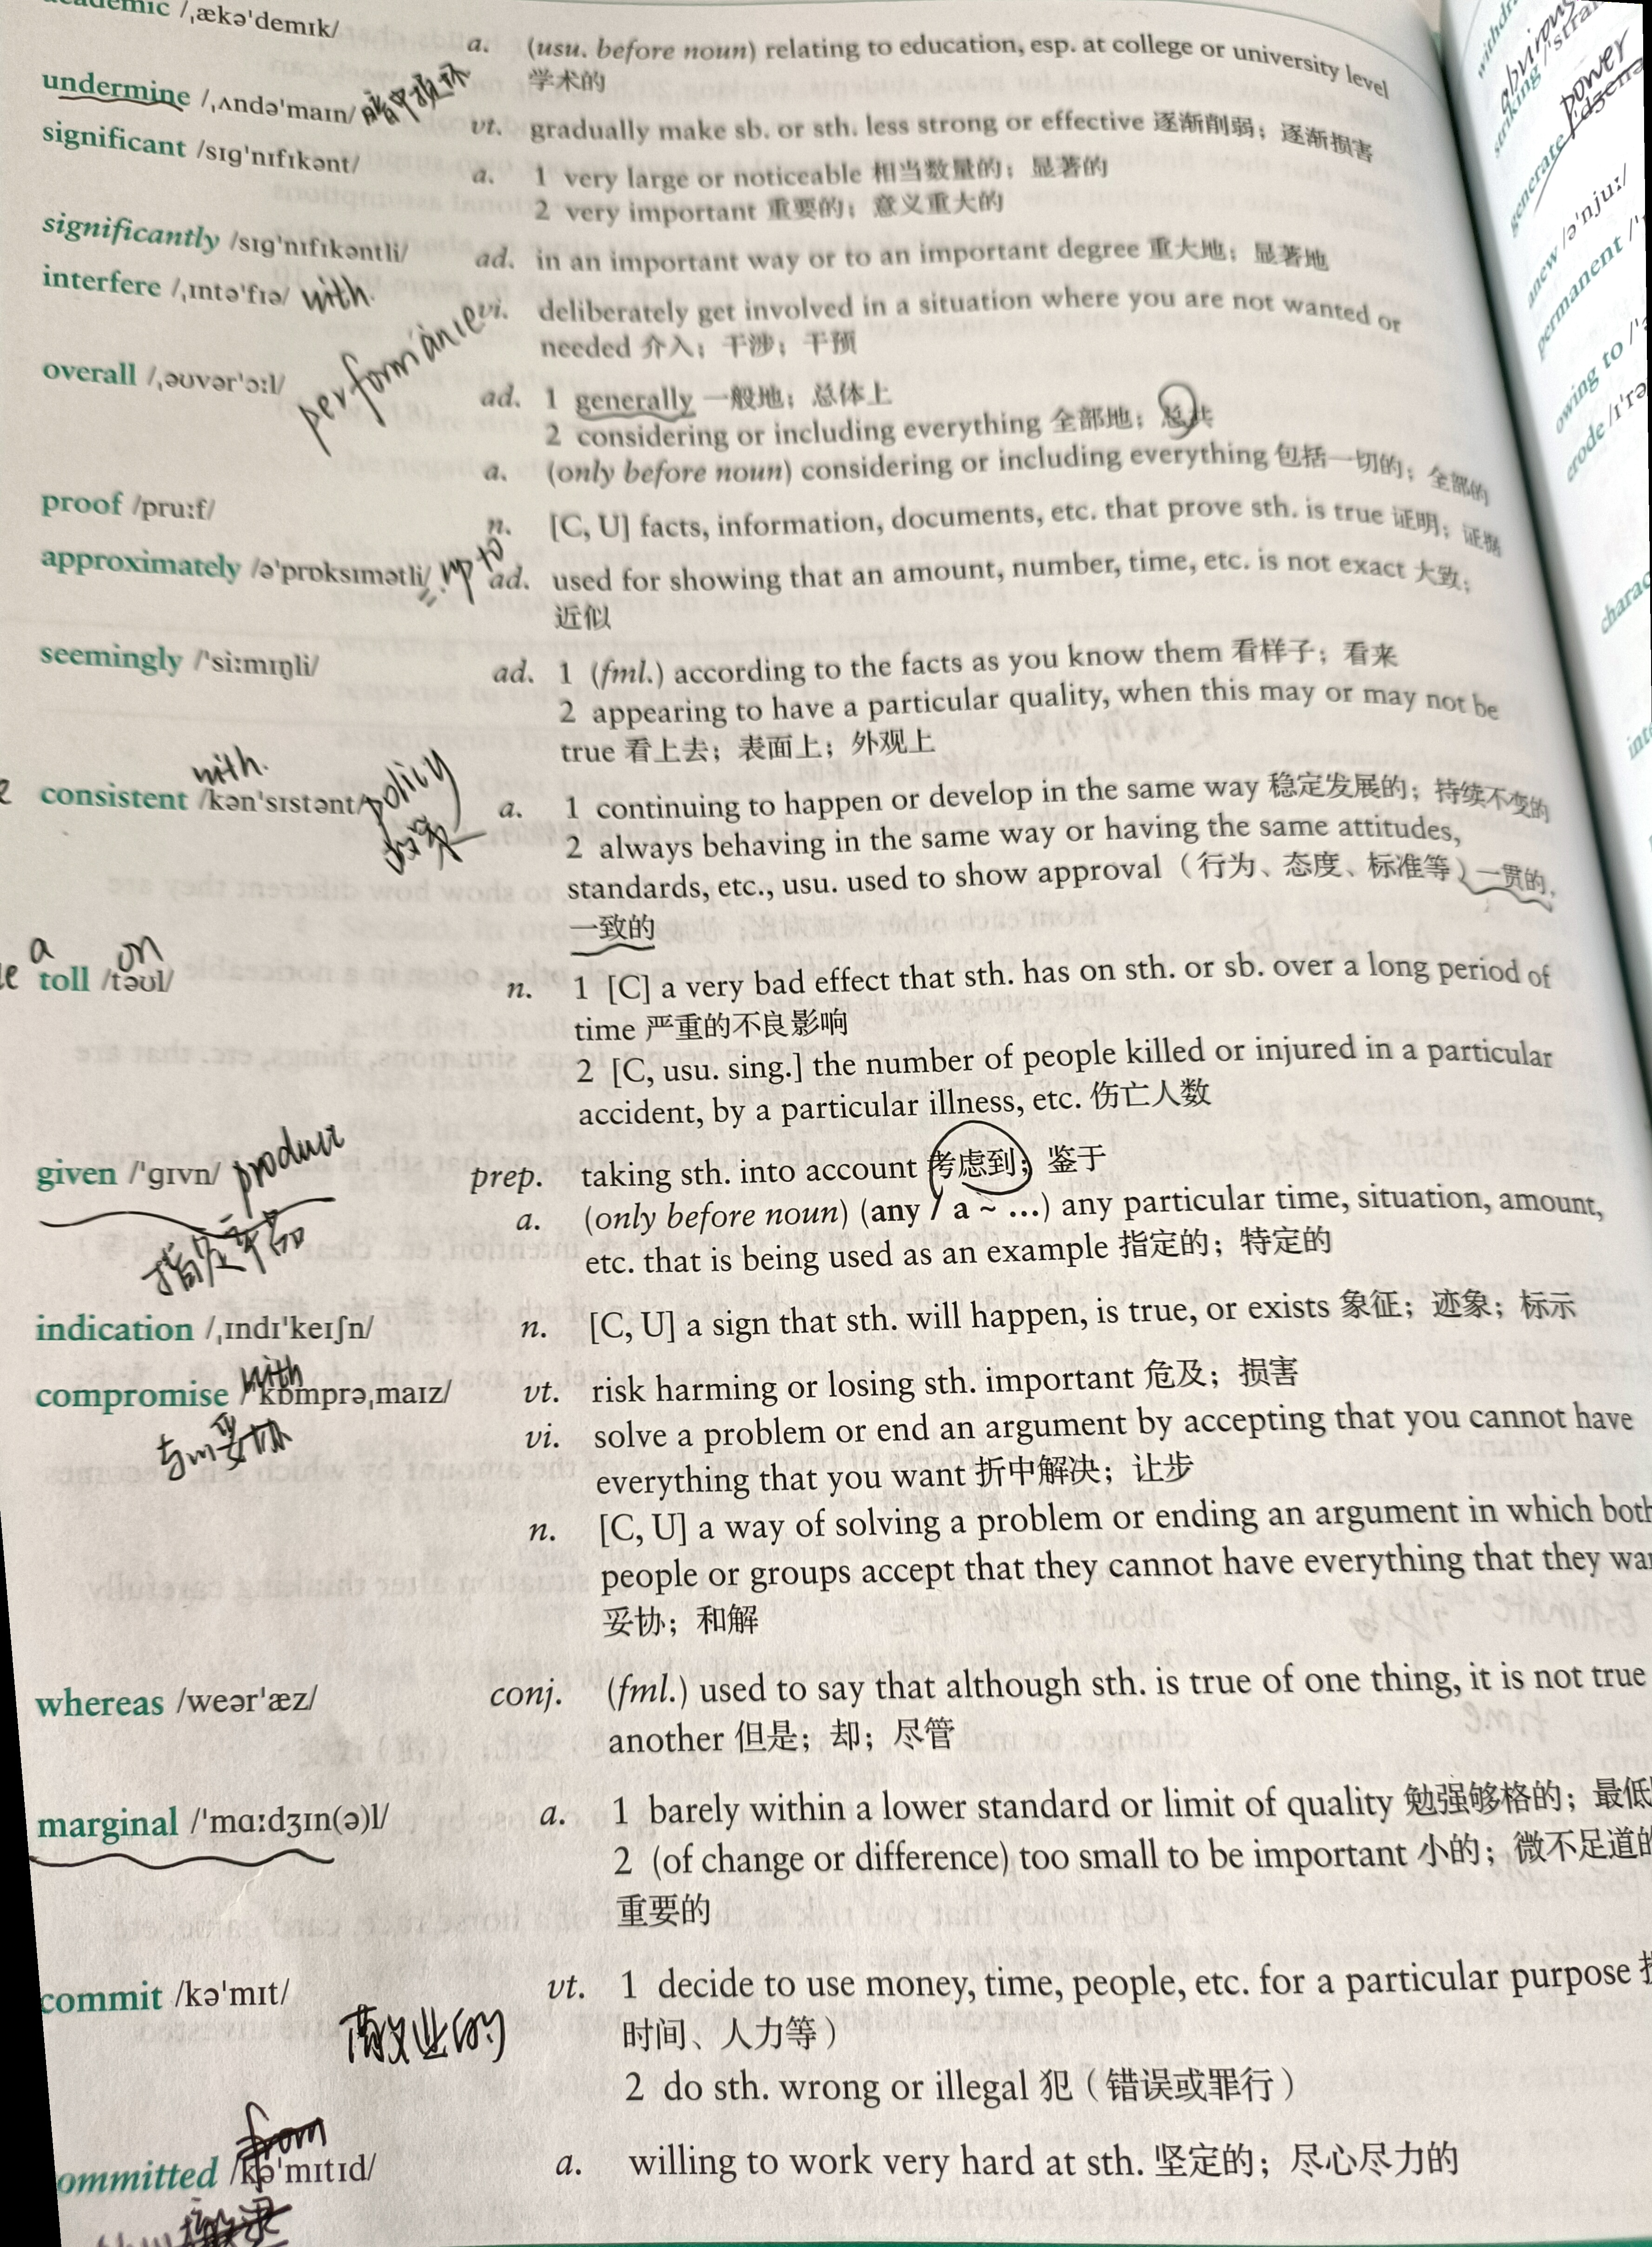 /ˌækəˈdemɪk/ a. (usu. before noun) relating to education, esp. at college or university level
学术的
undermine /ˌʌndəˈmaɪn/ vt. gradually make sb. or sth. less strong or effective 逐渐削弱；逐渐损害
significant /sɪɡˈnɪfɪkənt/ a. 1 very large or noticeable 相当数量的；显著的
2 very important 重要的；意义重大的
significantly /sɪɡˈnɪfɪkəntli/ ad. in an important way or to an important degree 重大地；显著地
interfere /ˌɪntəˈfɪə/ with. vi. deliberately get involved in a situation where you are not wanted or
needed 介入；干涉；干预
performance
overall /ˌəʊvərˈɔːl/ ad. 1 generally 一般地；总体上
2 considering or including everything 全部地；总共
a. (only before noun) considering or including everything 包括一切的；全部的
proof /pruːf/ n. [C, U] facts, information, documents, etc. that prove sth. is true 证明；证据
approximately /əˈprɒksɪmətli/ up to ad. used for showing that an amount, number, time, etc. is not exact 大致；
近似
seemingly /ˈsiːmɪŋli/ ad. 1 (fml.) according to the facts as you know them 看样子；看来
2 appearing to have a particular quality, when this may or may not be
true 看上去；表面上；外观上
with.
consistent /kənˈsɪstənt/ policy a. 1 continuing to happen or develop in the same way 稳定发展的；持续不变的
2 always behaving in the same way or having the same attitudes,
standards, etc., usu. used to show approval（行为、态度、标准等）一贯的，
一致的
a on
toll /təʊl/ n. 1 [C] a very bad effect that sth. has on sth. or sb. over a long period of
time 严重的不良影响
2 [C, usu. sing.] the number of people killed or injured in a particular
accident, by a particular illness, etc. 伤亡人数
given /ˈɡɪvn/ product prep. taking sth. into account 考虑到；鉴于
指定产品 a. (only before noun) (any / a ~ …) any particular time, situation, amount,
etc. that is being used as an example 指定的；特定的
indication /ˌɪndɪˈkeɪʃn/ n. [C, U] a sign that sth. will happen, is true, or exists 象征；迹象；标示
with
compromise /ˈkɒmprəˌmaɪz/ vt. risk harming or losing sth. important 危及；损害
与m妥协 vi. solve a problem or end an argument by accepting that you cannot have
everything that you want 折中解决；让步
n. [C, U] a way of solving a problem or ending an argument in which both
people or groups accept that they cannot have everything that they
妥协；和解
whereas /weərˈæz/ conj. (fml.) used to say that although sth. is true of one thing, it is not true
another 但是；却；尽管
marginal /ˈmɑːdʒɪn(ə)l/ a. 1 barely within a lower standard or limit of quality 勉强够格的；最低
2 (of change or difference) too small to be important 小的；微不足道的
重要的
commit /kəˈmɪt/ vt. 1 decide to use money, time, people, etc. for a particular purpose
敬业的 时间、人力等）
2 do sth. wrong or illegal 犯（错误或罪行）
from
ommitted /kəˈmɪtɪd/ a. willing to work very hard at sth. 坚定的；尽心尽力的
striking
power
generate
anew /əˈnjuː/
permanent
owing to
erode